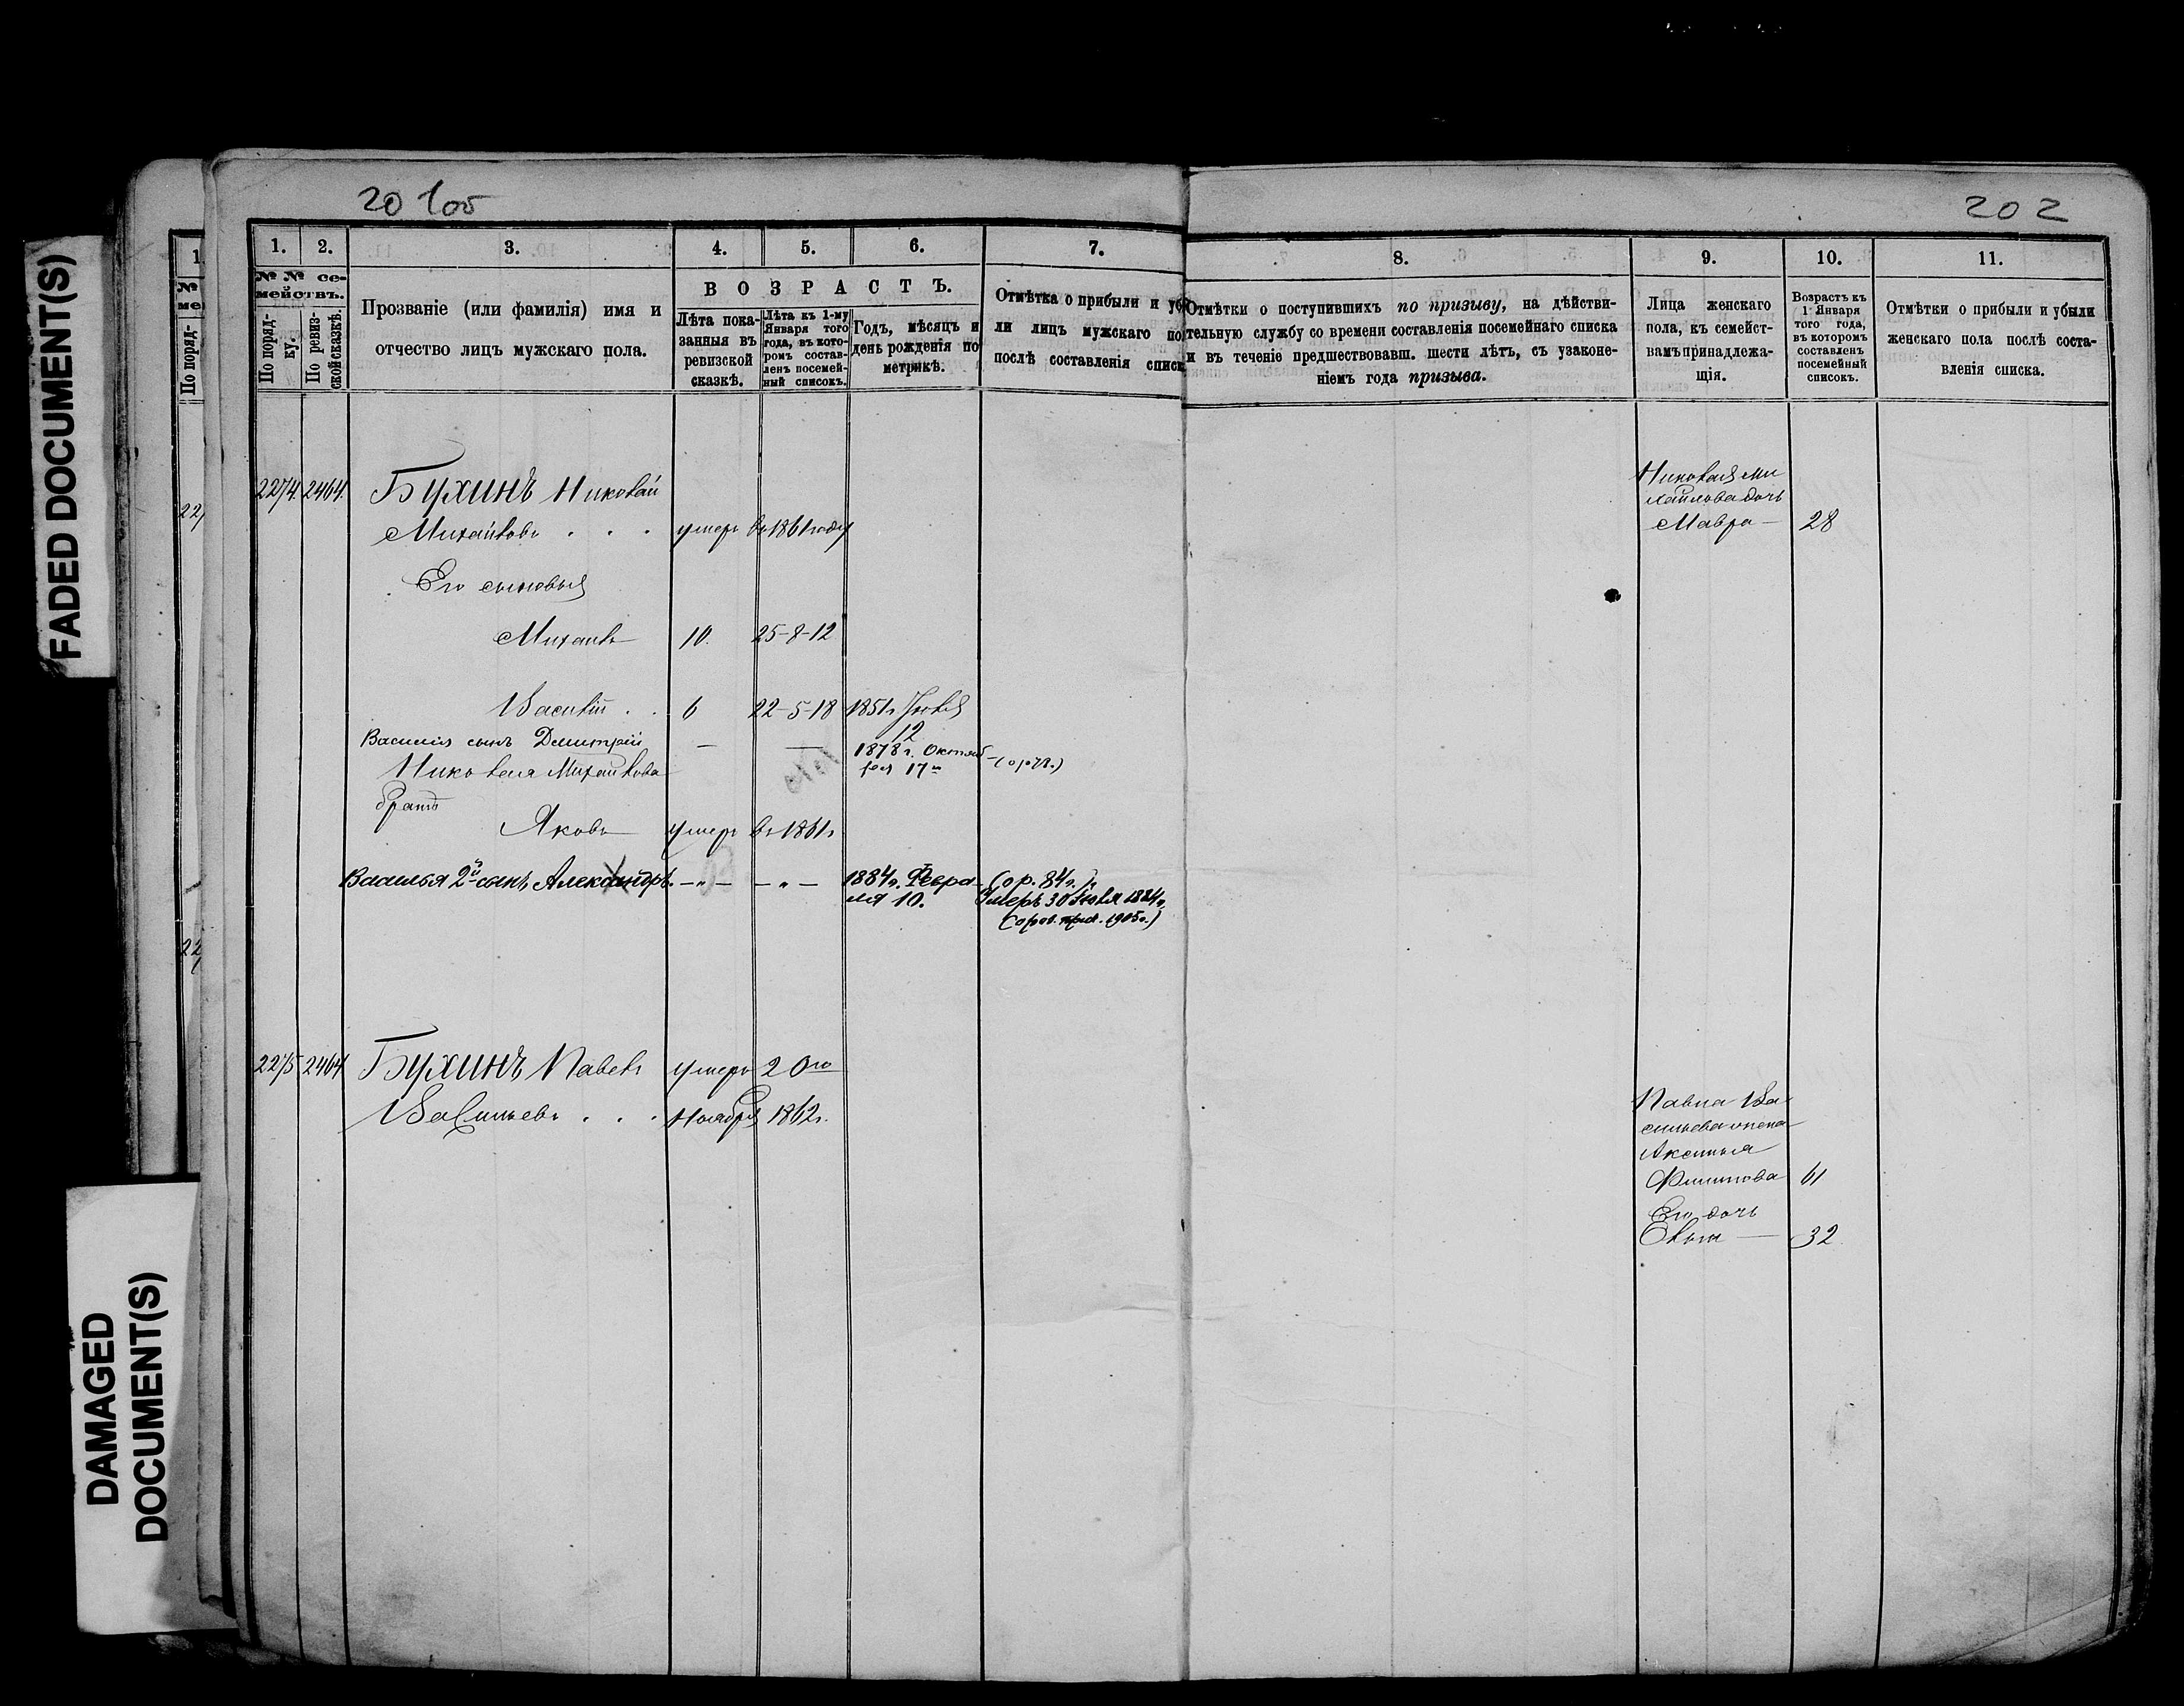 FADED DOCUMENT(S)
DAMAGED
DOCUMENT(S)
20 100
202
1. 2. 3. 4. 5. 6. 7. 8. 9. 10. 11.
№ № се-
мействъ.
По поряд-
ку.
По ревиз-
ской сказкѣ.
Прозваніе (или фамилія) имя и
отчество лицъ мужскаго пола.
ВОЗРАСТЪ.
Лѣта пока-
занныя въ
ревизской
сказкѣ.
Лѣта къ 1-му
Января того
года, въ кото-
ромъ состав-
ленъ посемей-
ный списокъ.
Годъ, мѣсяцъ и
день рожденія по
метрикѣ.
Отмѣтка о прибыли и уб
ли лицъ мужскаго по
послѣ составленія списк
Отмѣтки о поступившихъ по призыву, на дѣйстви-
тельную службу со времени составленія посемейнаго списка
и въ теченіе предшествовавш. шести лѣтъ, съ узаконе-
ніемъ года призыва.
Лица женскаго
пола, къ семейст-
вамъ принадлежа-
щія.
Возрастъ къ
1 Января
того года,
въ которомъ
составленъ
посемейный
списокъ.
Отмѣтки о прибыли и убыли
женскаго пола послѣ соста-
вленія списка.
2274. 2464. Бухинъ Николай
Михайловъ . . . умеръ въ 1861 году
Николая Ми
хайлова дочь
Мавра — 28
Его сыновья
Михаилъ 10. 25-8-12
Василій . . 6 22-5-18 1851г Іюля
12
Василія сынъ Дмитрій — — 1878 г. Октяб
ря 17
Николая Михайлова
братъ
Яковъ умеръ въ 1861г
Василья 2й сынъ Александръ. —"— —"— 1884г. Февра-
ля 10.
(ор. 84г.)
Умеръ 30 Іюля 1884г.
2275 2464 Бухинъ Павелъ умеръ 20го
Васильевъ . . . Ноября 1862г.
Павла Ва
сильева жена
Аксинья
Филипова 61
Его дочь
— 32